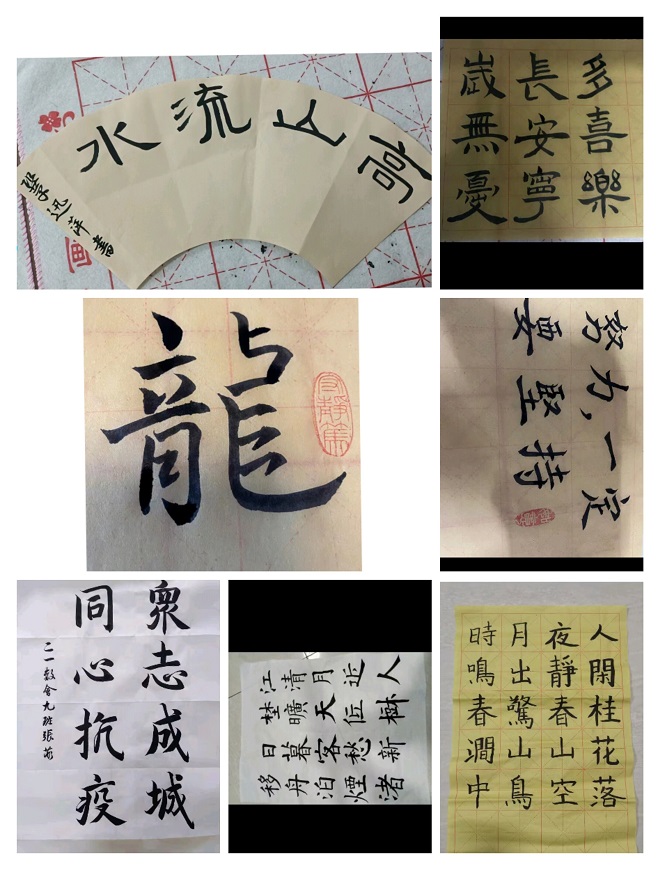 高山流水
書
多喜樂
長安寧
歲無憂
龍
努力,一定
要堅持
眾志成城
同心抗疫
二一數會九班張
移舟泊煙渚
日暮客愁新
埜曠天低樹
江清月近人
人閑桂花落
夜靜春山空
月出驚山鳥
時鳴春澗中